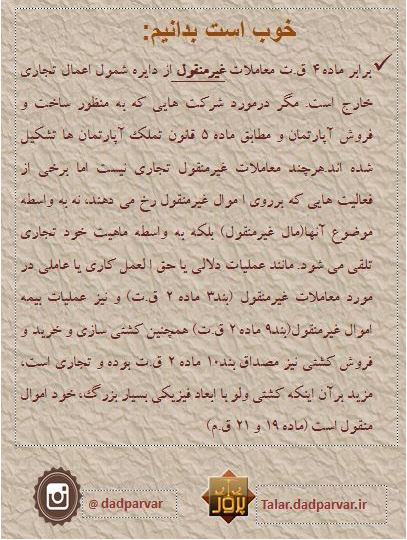 خوب است بدانیم:
برابر ماده۴ ق.ت معاملات غیرمنقول از دایره شمول اعمال تجاری
خارج است. مگر درمورد شرکت هایی که به منظور ساخت و
فروش آپارتمان و مطابق ماده ۵ قانون تملک آپارتمان ها تشکیل
شده اند.هرچند معاملات غیرمنقول تجاری نیست اما برخی از
فعالیت هایی که برروی اموال غیرمنقول رخ می دهند، نه به واسطه
موضوع آنها(مال غیرمنقول) بلکه به واسطه ماهیت خود تجاری
تلقی می شود. مانند عملیات دلالی یا حق العمل کاری یا عاملی در
مورد معاملات غیرمنقول (بند۳ ماده ۲ ق.ت) و نیز عملیات بیمه
اموال غیرمنقول(بند۹ ماده ۲ ق.ت) همچنین کشتی سازی و خرید و
فروش کشتی نیز مصداق بند۱۰ ماده ۲ ق.ت بوده و تجاری است،
مزید برآن اینکه کشتی ولو با ابعاد فیزیکی بسیار بزرگ، خود اموال
منقول است (ماده ۱۹ و ۲۱ ق.م)
@ dadparvar
Talar.dadparvar.ir